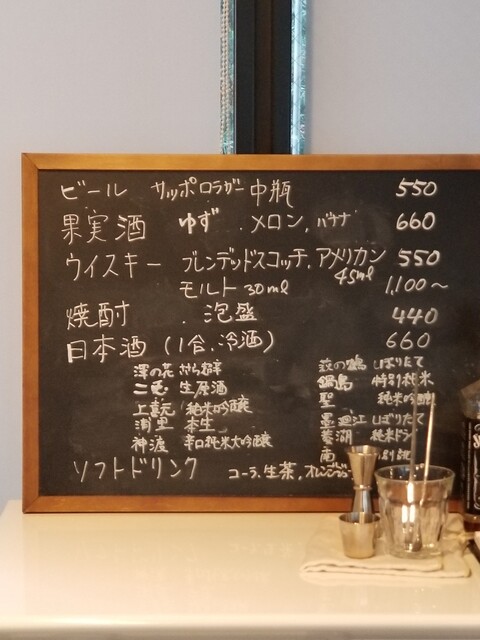 ビール サッポロラガー 中瓶 550
果実酒 ゆず . メロン. バナナ 660
ウイスキー ブレンデッドスコッチ. アメリカン 45ml 550
モルト 30ml 1,100〜
焼酎 . 泡盛 440
日本酒 (1合.冷酒) 660
澤の花 さら超辛
二兎 生原酒
上喜元 純米吟醸
浦里 本生
神渡 辛口純米大吟醸
萩の鶴 しぼりたて
鍋島 特別純米
聖 純米吟醸
墨廼江 しぼりたて
純米
南
ソフトドリンク コーラ.生茶.オレンジ